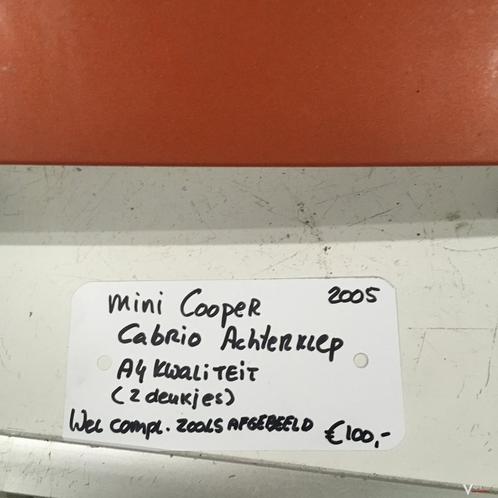 mini Cooper 2005
Cabrio Achterklep
A4 KWALITEIT
(2 deukjes)
Wel compl. zoals AFGEBEELD €100,-